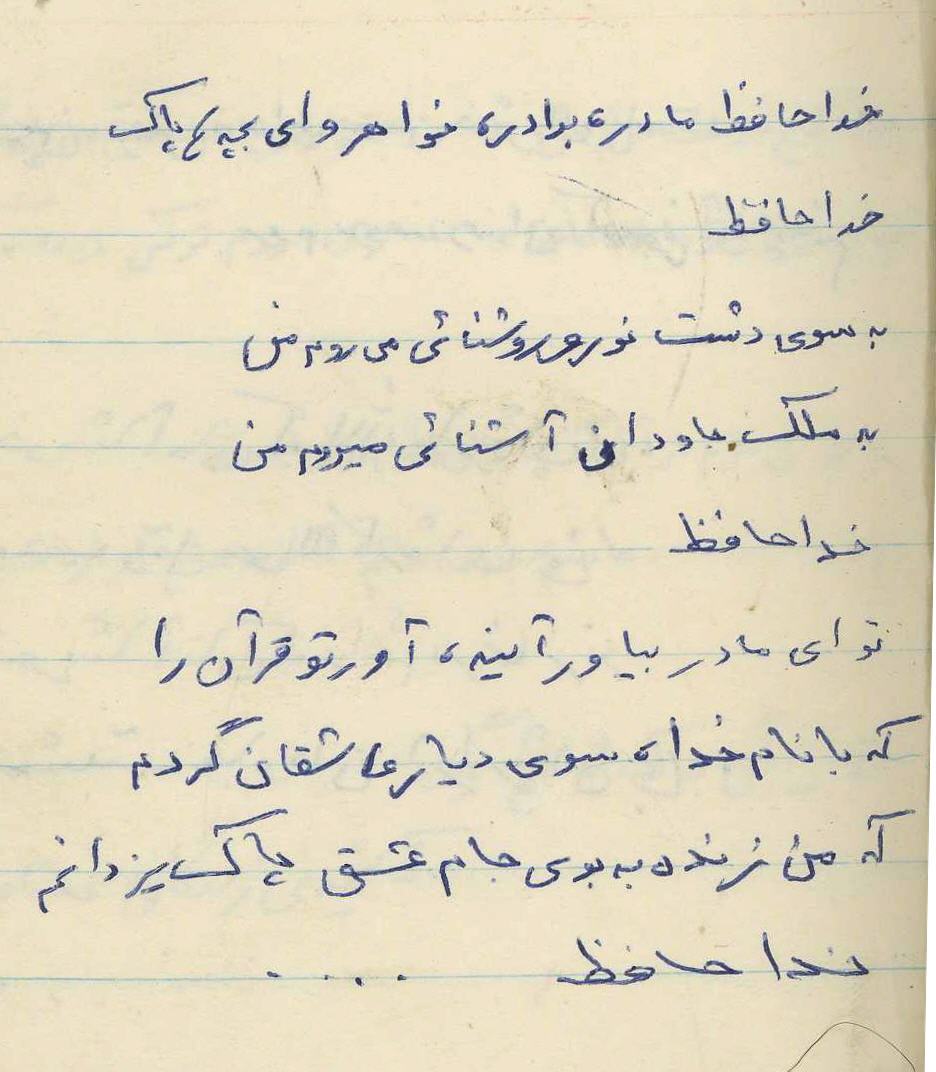 خداحافظ مادر، برادر، خواهر و ای بچه های پاک
خداحافظ
به سوی دشت نور و روشنائی می روم من
به ملک جاودان آشنائی میروم من
خداحافظ
تو ای مادر بیاور آینه، آور تو قرآن را
که با نام خدا، سوی دیار عاشقان گردم
که من زنده به بوی جام عشق پاک یزدانم
خداحافظ . . . .